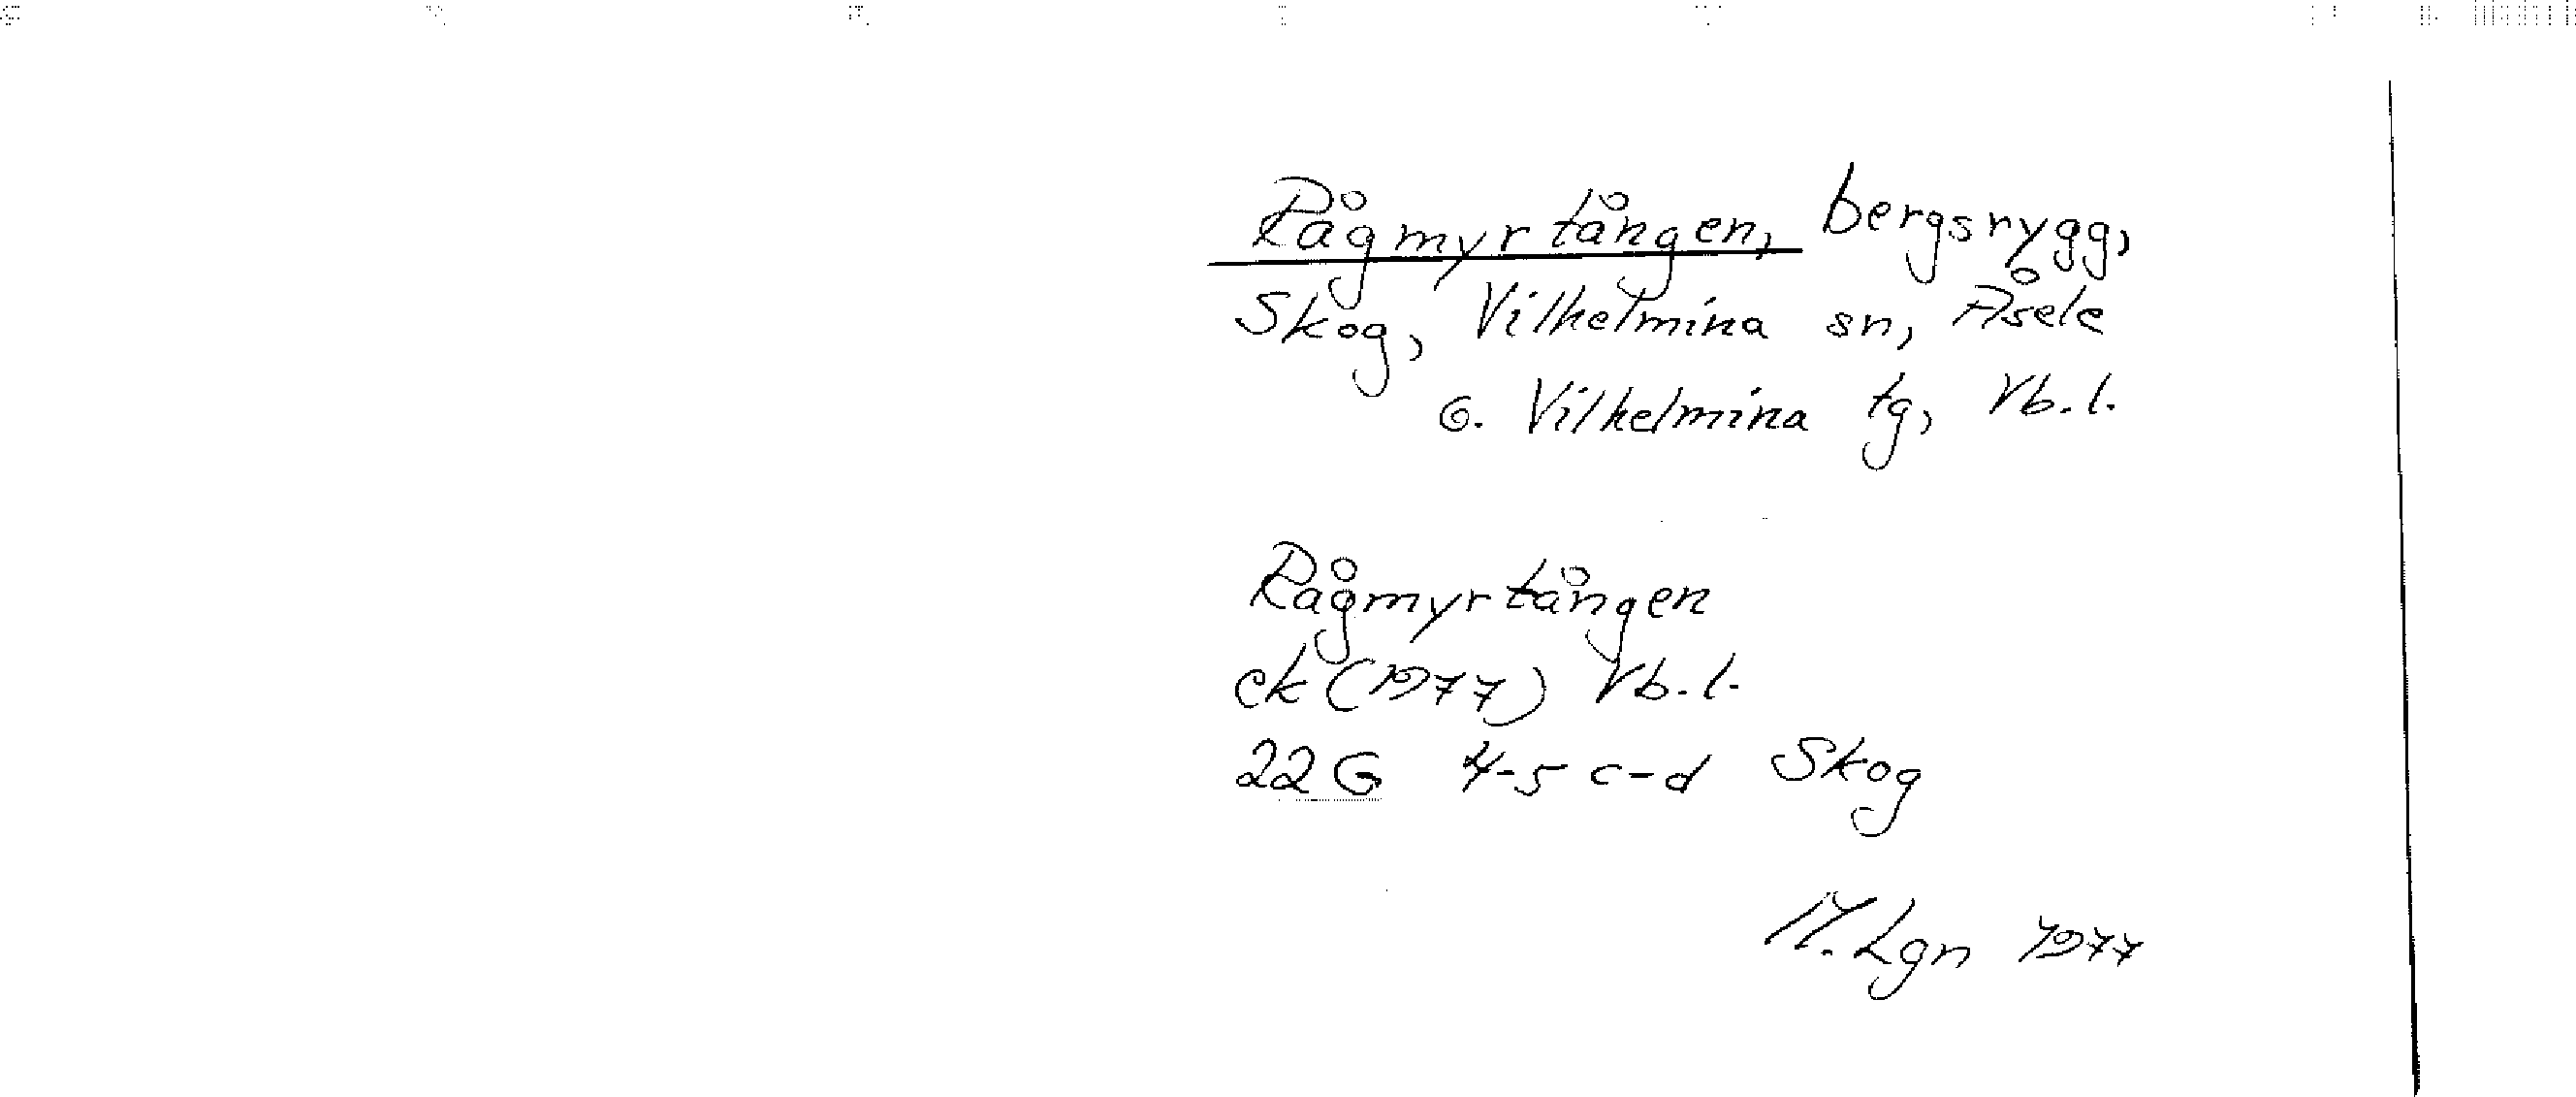 Rågmyrtången, bergsrygg,
Skog, Vilhelmina sn, Åsele
o. Vilhelmina tg, Vb. l.
Rågmyrtången
ek (1977) Vb. l.
22 G 4-5 c-d Skog
M. Lgn 1977